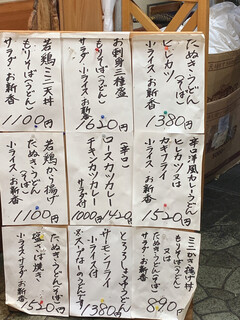 たぬき・うどん(そば)
ヒレカツ
小ライス・お新香
1380円
お刺身三種盛
もりそば(うどん)
小ライス付
1620円
若鶏ミニ天丼
もりそば(うどん)
サラダ・お新香
1100円
辛口 洋風カレーうどん
ヒレカツ 又は
カキフライ
小ライス・お新香
1520円
(辛口)
ロースカツカレー
チキンカツカレー
1000円 1420円
若鶏から揚げ
たぬき・うどん(そば)
小ライス お新香
1100円
ミニかき揚げ丼
たぬき 又は
もりそば(うどん)
サラダ・お新香
890円
とろろしょうゆうどん
サーモンフライ
小ライス付
1380円
たぬき・うどん(そば)
小ライス サラダ お新香
1520円